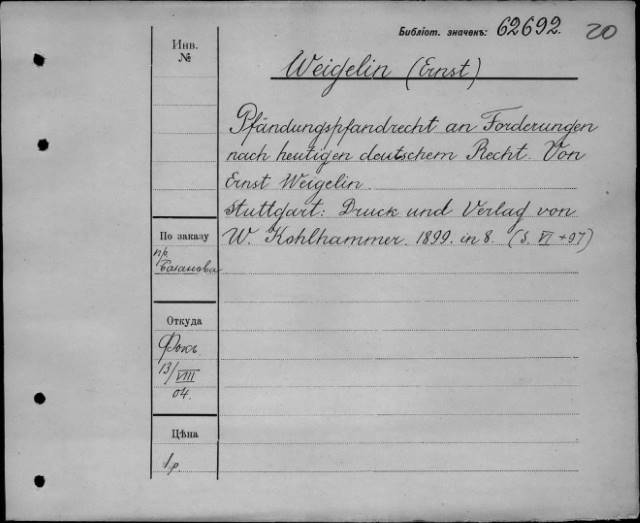 Библіот. значекъ: 62692. 20
Weigelin (Ernst)
Pfändungspfandrecht an Forderungen
nach heutigen deutschem Recht. Von
Ernst Weigelin.
Stuttgart: Druck und Verlag von
W. Kohlhammer. 1899. in 8. (S. VI + 97)
Инв.
№
По заказу
пр.
Базанова
Откуда
Фокъ
13/VIII
04.
Цѣна
1 р.